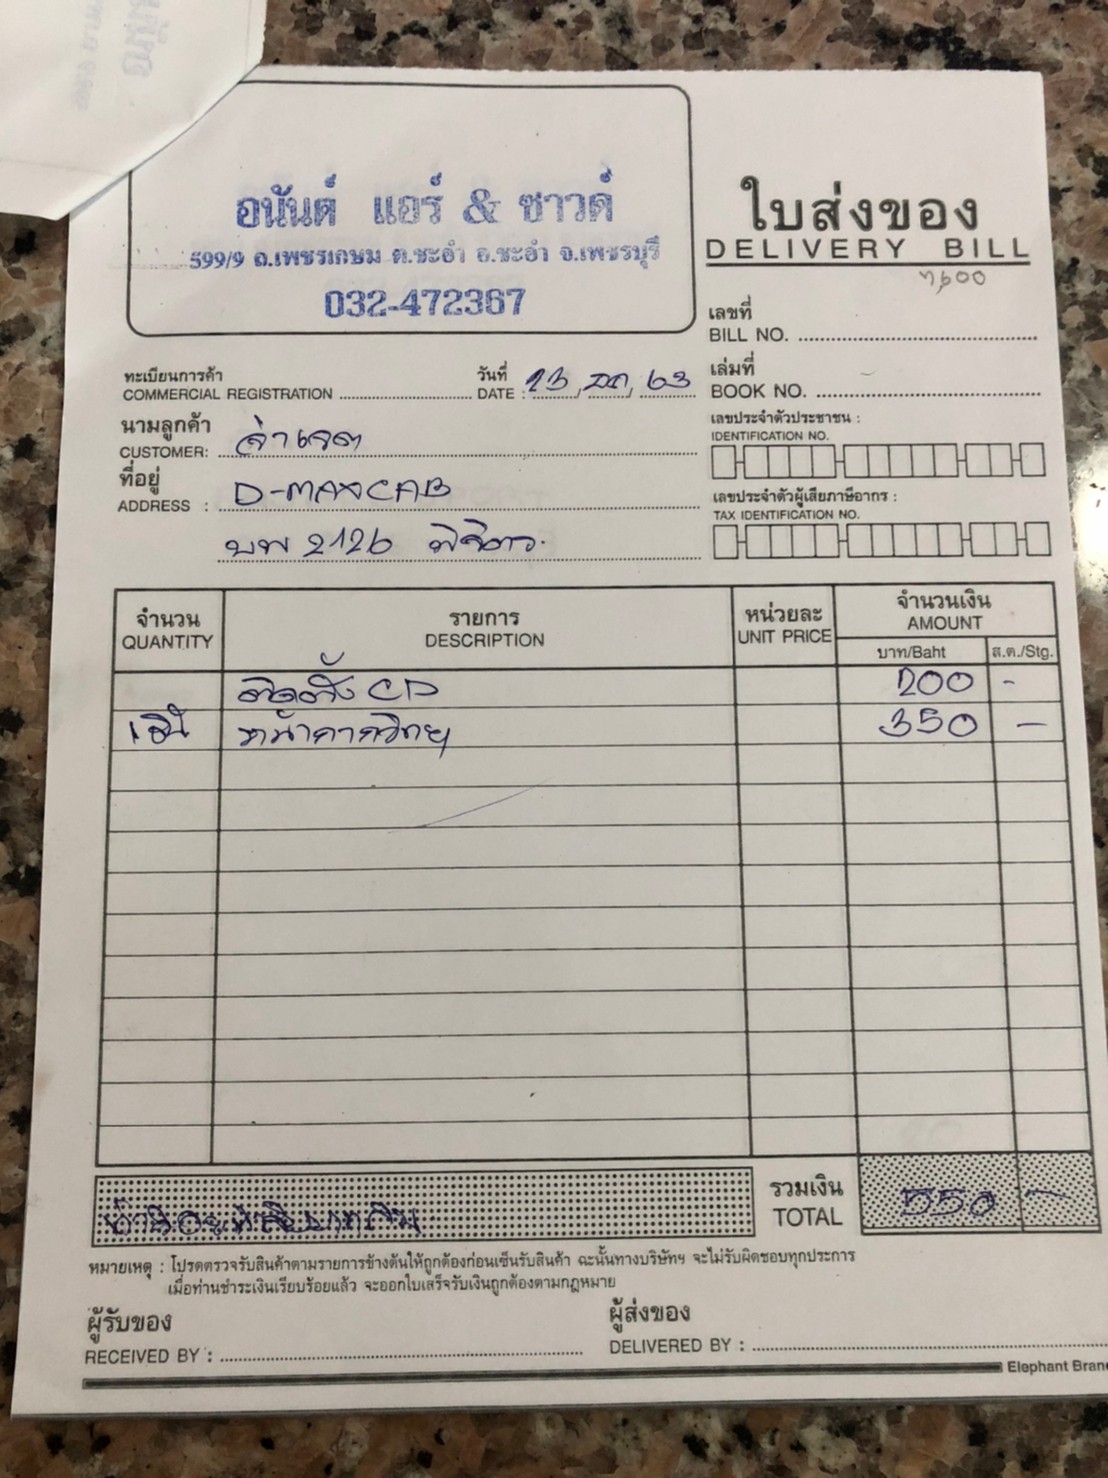 อนันต์ แอร์ & ซาวด์
599/9 ถ.เพชรเกษม ต.ชะอำ อ.ชะอำ จ.เพชรบุรี
032-472367
ใบส่งของ
DELIVERY BILL
7,600
เลขที่
BILL NO.
ทะเบียนการค้า
COMMERCIAL REGISTRATION
วันที่
DATE : 23 / ตค / 63
เล่มที่
BOOK NO.
นามลูกค้า
CUSTOMER: จ่า
ที่อยู่
ADDRESS : D-MAX CAB
บพ 2126 พิจิตร
เลขประจำตัวประชาชน :
IDENTIFICATION NO.
เลขประจำตัวผู้เสียภาษีอากร :
TAX IDENTIFICATION NO.
จำนวน รายการ หน่วยละ จำนวนเงิน
QUANTITY DESCRIPTION UNIT PRICE AMOUNT
บาท/Baht ส.ต./Stg.
ติดตั้ง CD 200 -
1 อัน หน้ากากวิทยุ 350 -
ห้าร้อยห้าสิบบาทถ้วน
รวมเงิน
TOTAL 550 -
หมายเหตุ : โปรดตรวจรับสินค้าตามรายการข้างต้นให้ถูกต้องก่อนเซ็นรับสินค้า ฉะนั้นทางบริษัทฯ จะไม่รับผิดชอบทุกประการ
เมื่อท่านชำระเงินเรียบร้อยแล้ว จะออกใบเสร็จรับเงินถูกต้องตามกฎหมาย
ผู้รับของ
RECEIVED BY :
ผู้ส่งของ
DELIVERED BY :
Elephant Bran